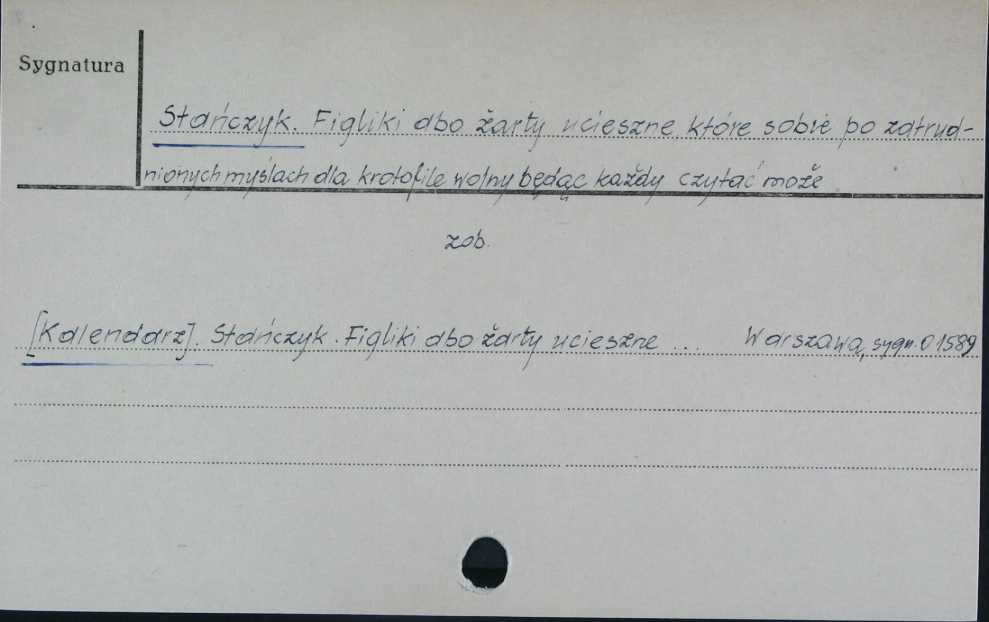 Sygnatura
Stańczyk. Figliki abo żarty ucieszne, które sobie po zatrud-
nionych myślach dla krotofile wolny będąc każdy czytać może
zob.
[Kalendarz]. Stańczyk. Figliki abo żarty ucieszne ... Warszawa, sygn. O 1589